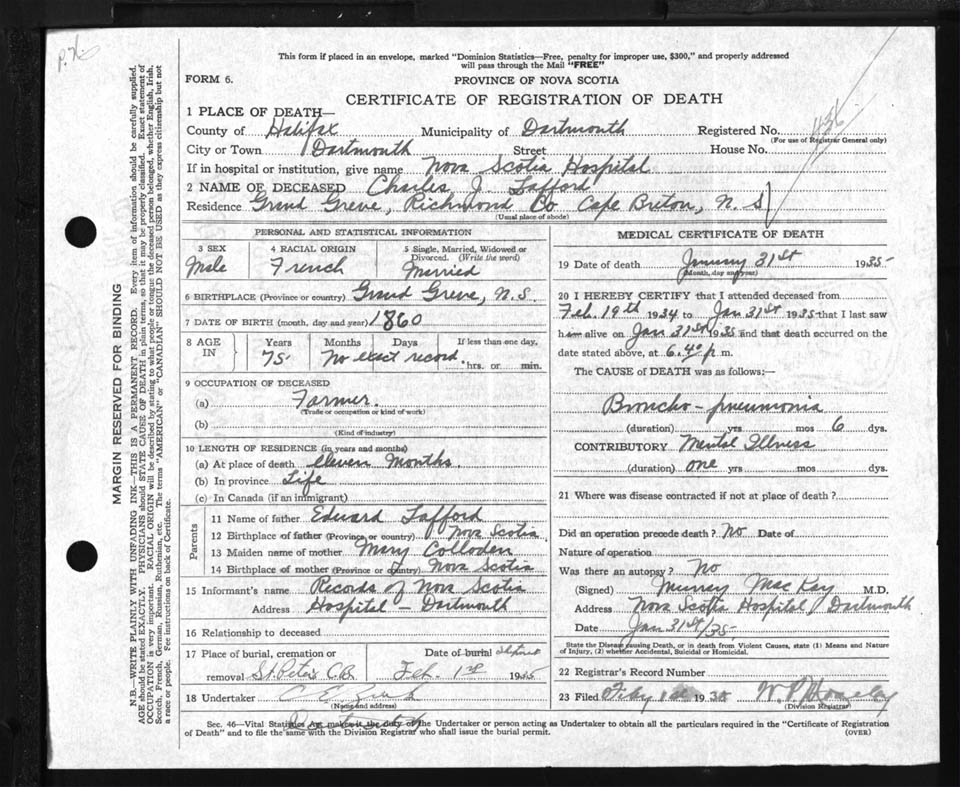 This form if placed in an envelope, marked "Dominion Statistics—Free, penalty for improper use, $300," and properly addressed
will pass through the Mail "FREE"
FORM 6.
PROVINCE OF NOVA SCOTIA
CERTIFICATE OF REGISTRATION OF DEATH
1 PLACE OF DEATH—
County of Halifax Municipality of Dartmouth Registered No. 1136
(For use of Registrar General only)
City or Town Dartmouth Street House No.
If in hospital or institution, give name Nova Scotia Hospital
2 NAME OF DECEASED Charles J. Lafford
Residence Grand Greve, Richmond Co Cape Breton, N. S
(Usual place of abode)
PERSONAL AND STATISTICAL INFORMATION
3 SEX 4 RACIAL ORIGIN 5 Single, Married, Widowed or
Divorced. (Write the word)
Male French Married
6 BIRTHPLACE (Province or country) Grand Greve, N.S.
7 DATE OF BIRTH (month, day and year) 1860
8 AGE IN Years Months Days If less than one day,
75 No exact record. hrs. or min.
9 OCCUPATION OF DECEASED
(a) Farmer
(Trade or occupation or kind of work)
(b)
(Kind of industry)
10 LENGTH OF RESIDENCE (in years and months)
(a) At place of death eleven Months.
(b) In province Life
(c) In Canada (if an immigrant)
Parents
11 Name of father Edward Lafford
12 Birthplace of father (Province or country) Nova Scotia
13 Maiden name of mother Mary Colloden
14 Birthplace of mother (Province or country) Nova Scotia
15 Informant's name Records of Nova Scotia
Address Hospital – Dartmouth
16 Relationship to deceased
17 Place of burial, cremation or Date of burial
removal St. Peters C.B. Feb. 1st 1935
18 Undertaker
(Name and address)
MEDICAL CERTIFICATE OF DEATH
19 Date of death January 31st 1935
(Month, day and year)
20 I HEREBY CERTIFY that I attended deceased from
Feb. 19th 1934 to Jan 31st 1935 that I last saw
him alive on Jan 31st 1935 and that death occurred on the
date stated above, at 6.40 p. m.
The CAUSE of DEATH was as follows:—
Broncho-pneumonia
(duration) yrs mos 6 dys.
CONTRIBUTORY Mental Illness
(duration) one yrs mos dys.
21 Where was disease contracted if not at place of death?
Did an operation precede death? No Date of
Nature of operation
Was there an autopsy? No
(Signed) Murray MacKay M.D.
Address Nova Scotia Hospital, Dartmouth
Date Jan 31st/35
State the Disease causing Death, or in death from Violent Causes, state (1) Means and Nature
of Injury, (2) whether Accidental, Suicidal or Homicidal.
22 Registrar's Record Number
23 Filed 1935
(Division Registrar)
Sec. 46—Vital Statistics Act makes it the duty of the Undertaker or person acting as Undertaker to obtain all the particulars required in the "Certificate of Registration
of Death" and to file the same with the Division Registrar who shall issue the burial permit. (OVER)
MARGIN RESERVED FOR BINDING
N.B.—WRITE PLAINLY WITH UNFADING INK—THIS IS A PERMANENT RECORD. Every item of information should be carefully supplied.
AGE should be stated EXACTLY. PHYSICIANS should STATE CAUSE OF DEATH in plain terms, so that it may be properly classified. Exact statement of
OCCUPATION is very important. RACIAL ORIGIN will be described by stating to what people or tongue the deceased person belonged, whether English, Irish,
Scotch, French, German, Russian, Ruthenian, etc. The terms "AMERICAN" or "CANADIAN" SHOULD NOT BE USED as they express citizenship but not
a race or people. See instructions on back of Certificate.